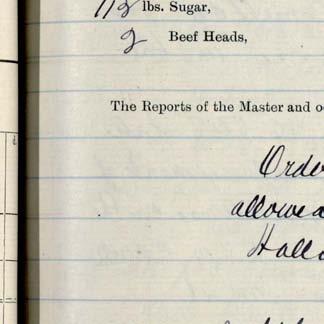 112 lbs. Sugar,
2 Beef Heads,
The Reports of the Master and o
Orde
allowed
Hall